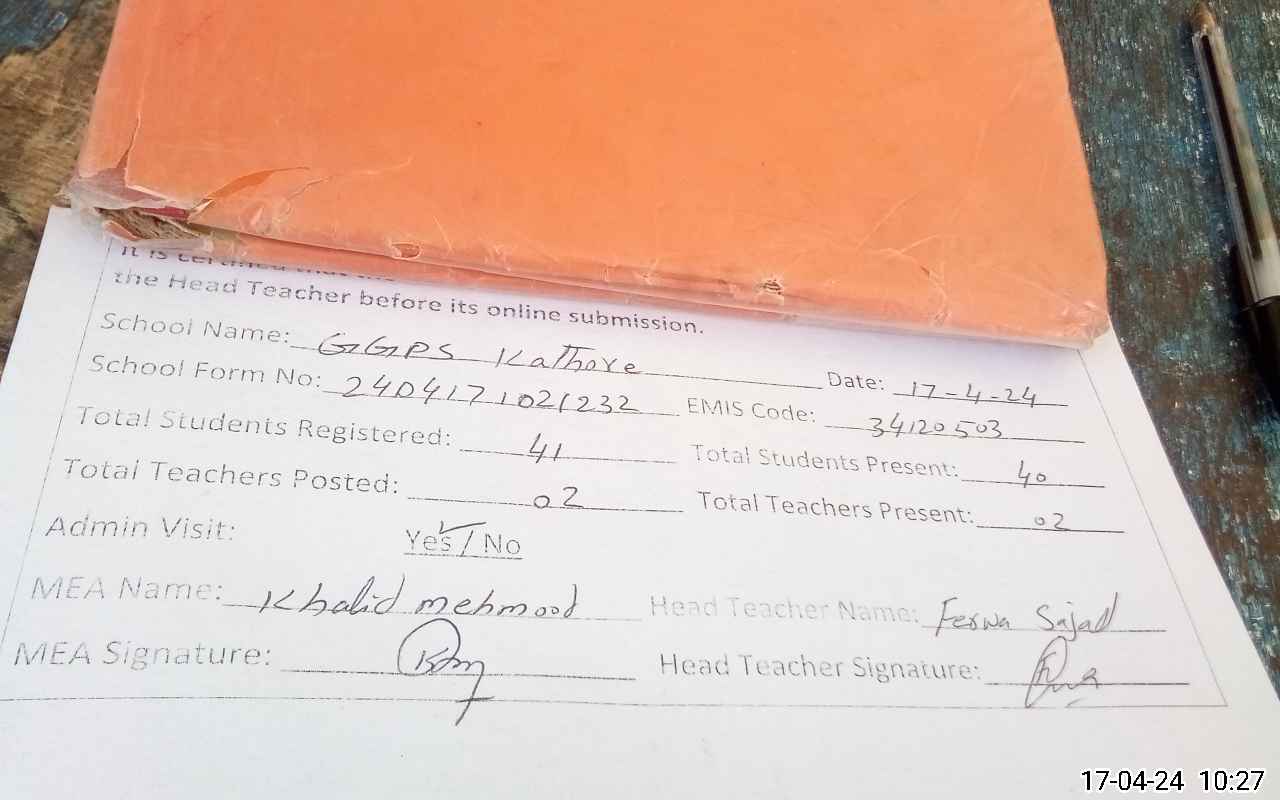 It is certified that the
the Head Teacher before its online submission.
School Name: GGPS Kathore Date: 17-4-24
School Form No: 240417 1021232 EMIS Code: 34120503
Total Students Registered: 41 Total Students Present: 40
Total Teachers Posted: 02 Total Teachers Present: 02
Admin Visit: Yes / No
MEA Name: Khalid mehmood Head Teacher Name: Ferwa Sajad
MEA Signature: Head Teacher Signature:
17-04-24 10:27